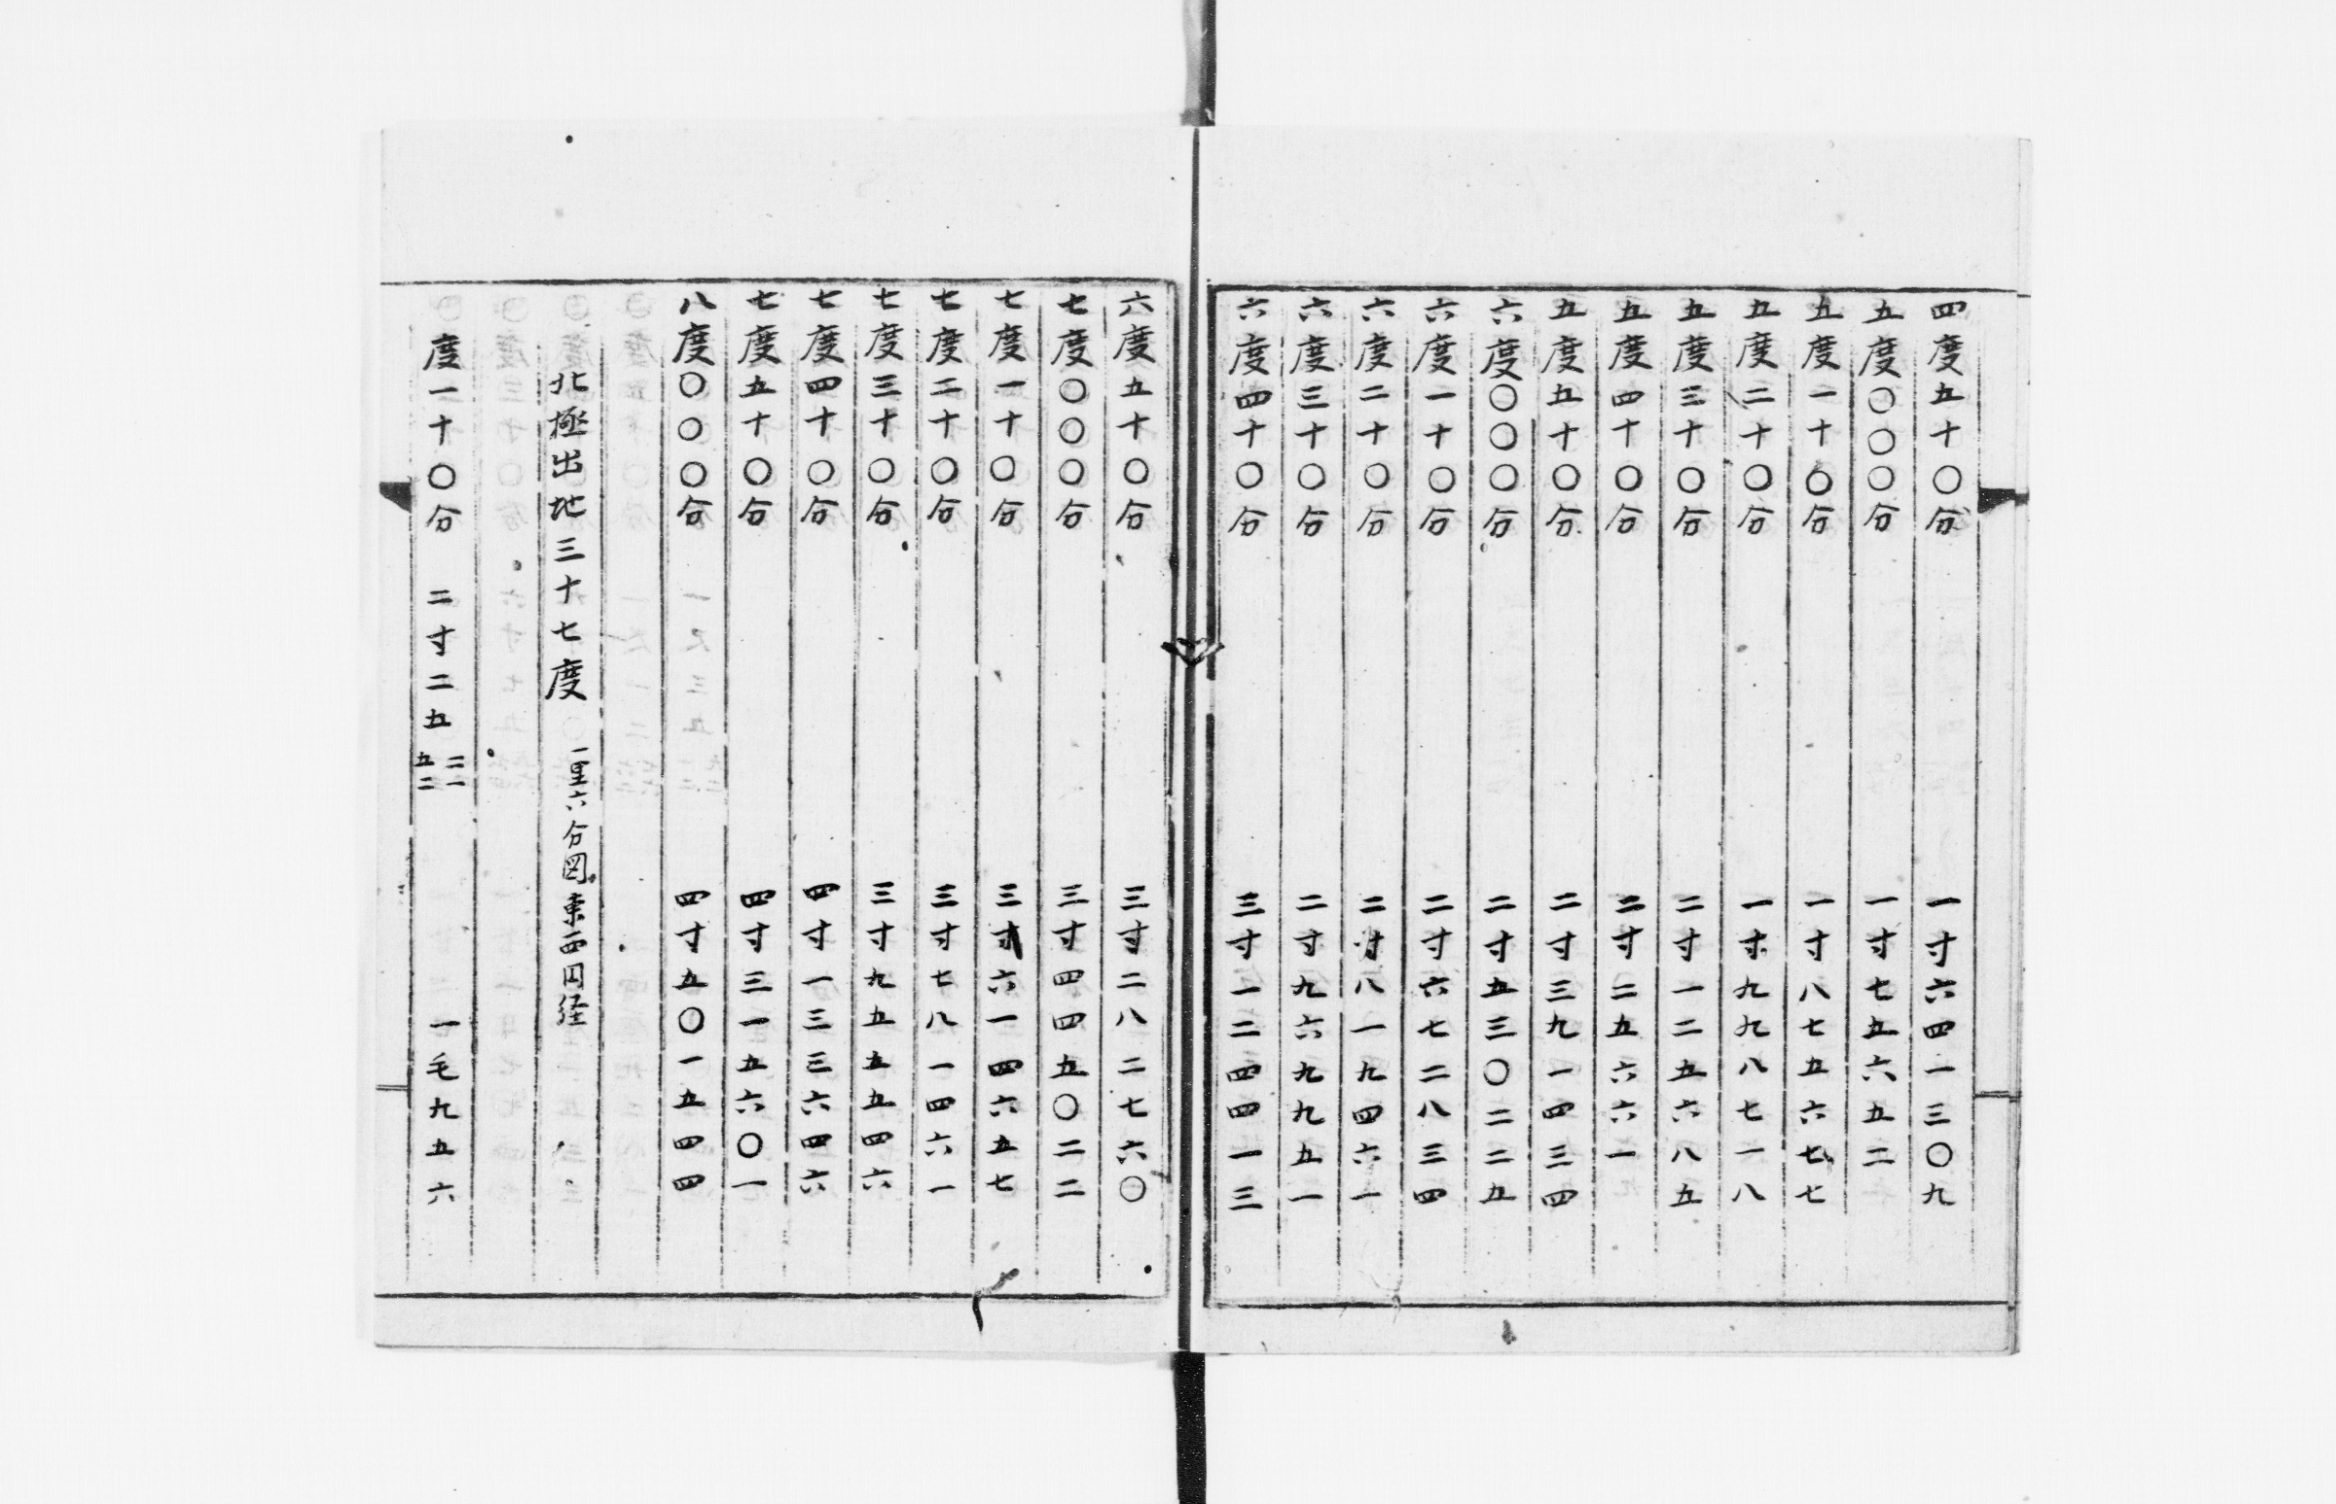 四度五十〇分 一寸六四一三〇九
五度〇〇〇分 一寸七五六五二
五度一十〇分 一寸八七五六七七
五度二十〇分 一寸九九八七一八
五度三十〇分 二寸一二五六八五
五度四十〇分 二寸二五六六一
五度五十〇分 二寸三九一四三四
六度〇〇〇分 二寸五三〇二二五
六度一十〇分 二寸六七二八三四
六度二十〇分 二寸八一九四六一
六度三十〇分 二寸九六九九五一
六度四十〇分 三寸一二四四一三
六度五十〇分 三寸二八二七六〇
七度〇〇〇分 三寸四四五〇二二
七度一十〇分 三寸六一四六五七
七度二十〇分 三寸七八一四六一
七度三十〇分 三寸九五五五四六
七度四十〇分 四寸一三三六四六
七度五十〇分 四寸三一五六〇一
八度〇〇〇分 四寸五〇一五四四
北極出地三十七度 一里六分図東西円経
度一十〇分 二寸二五二一五二 一毛九五六